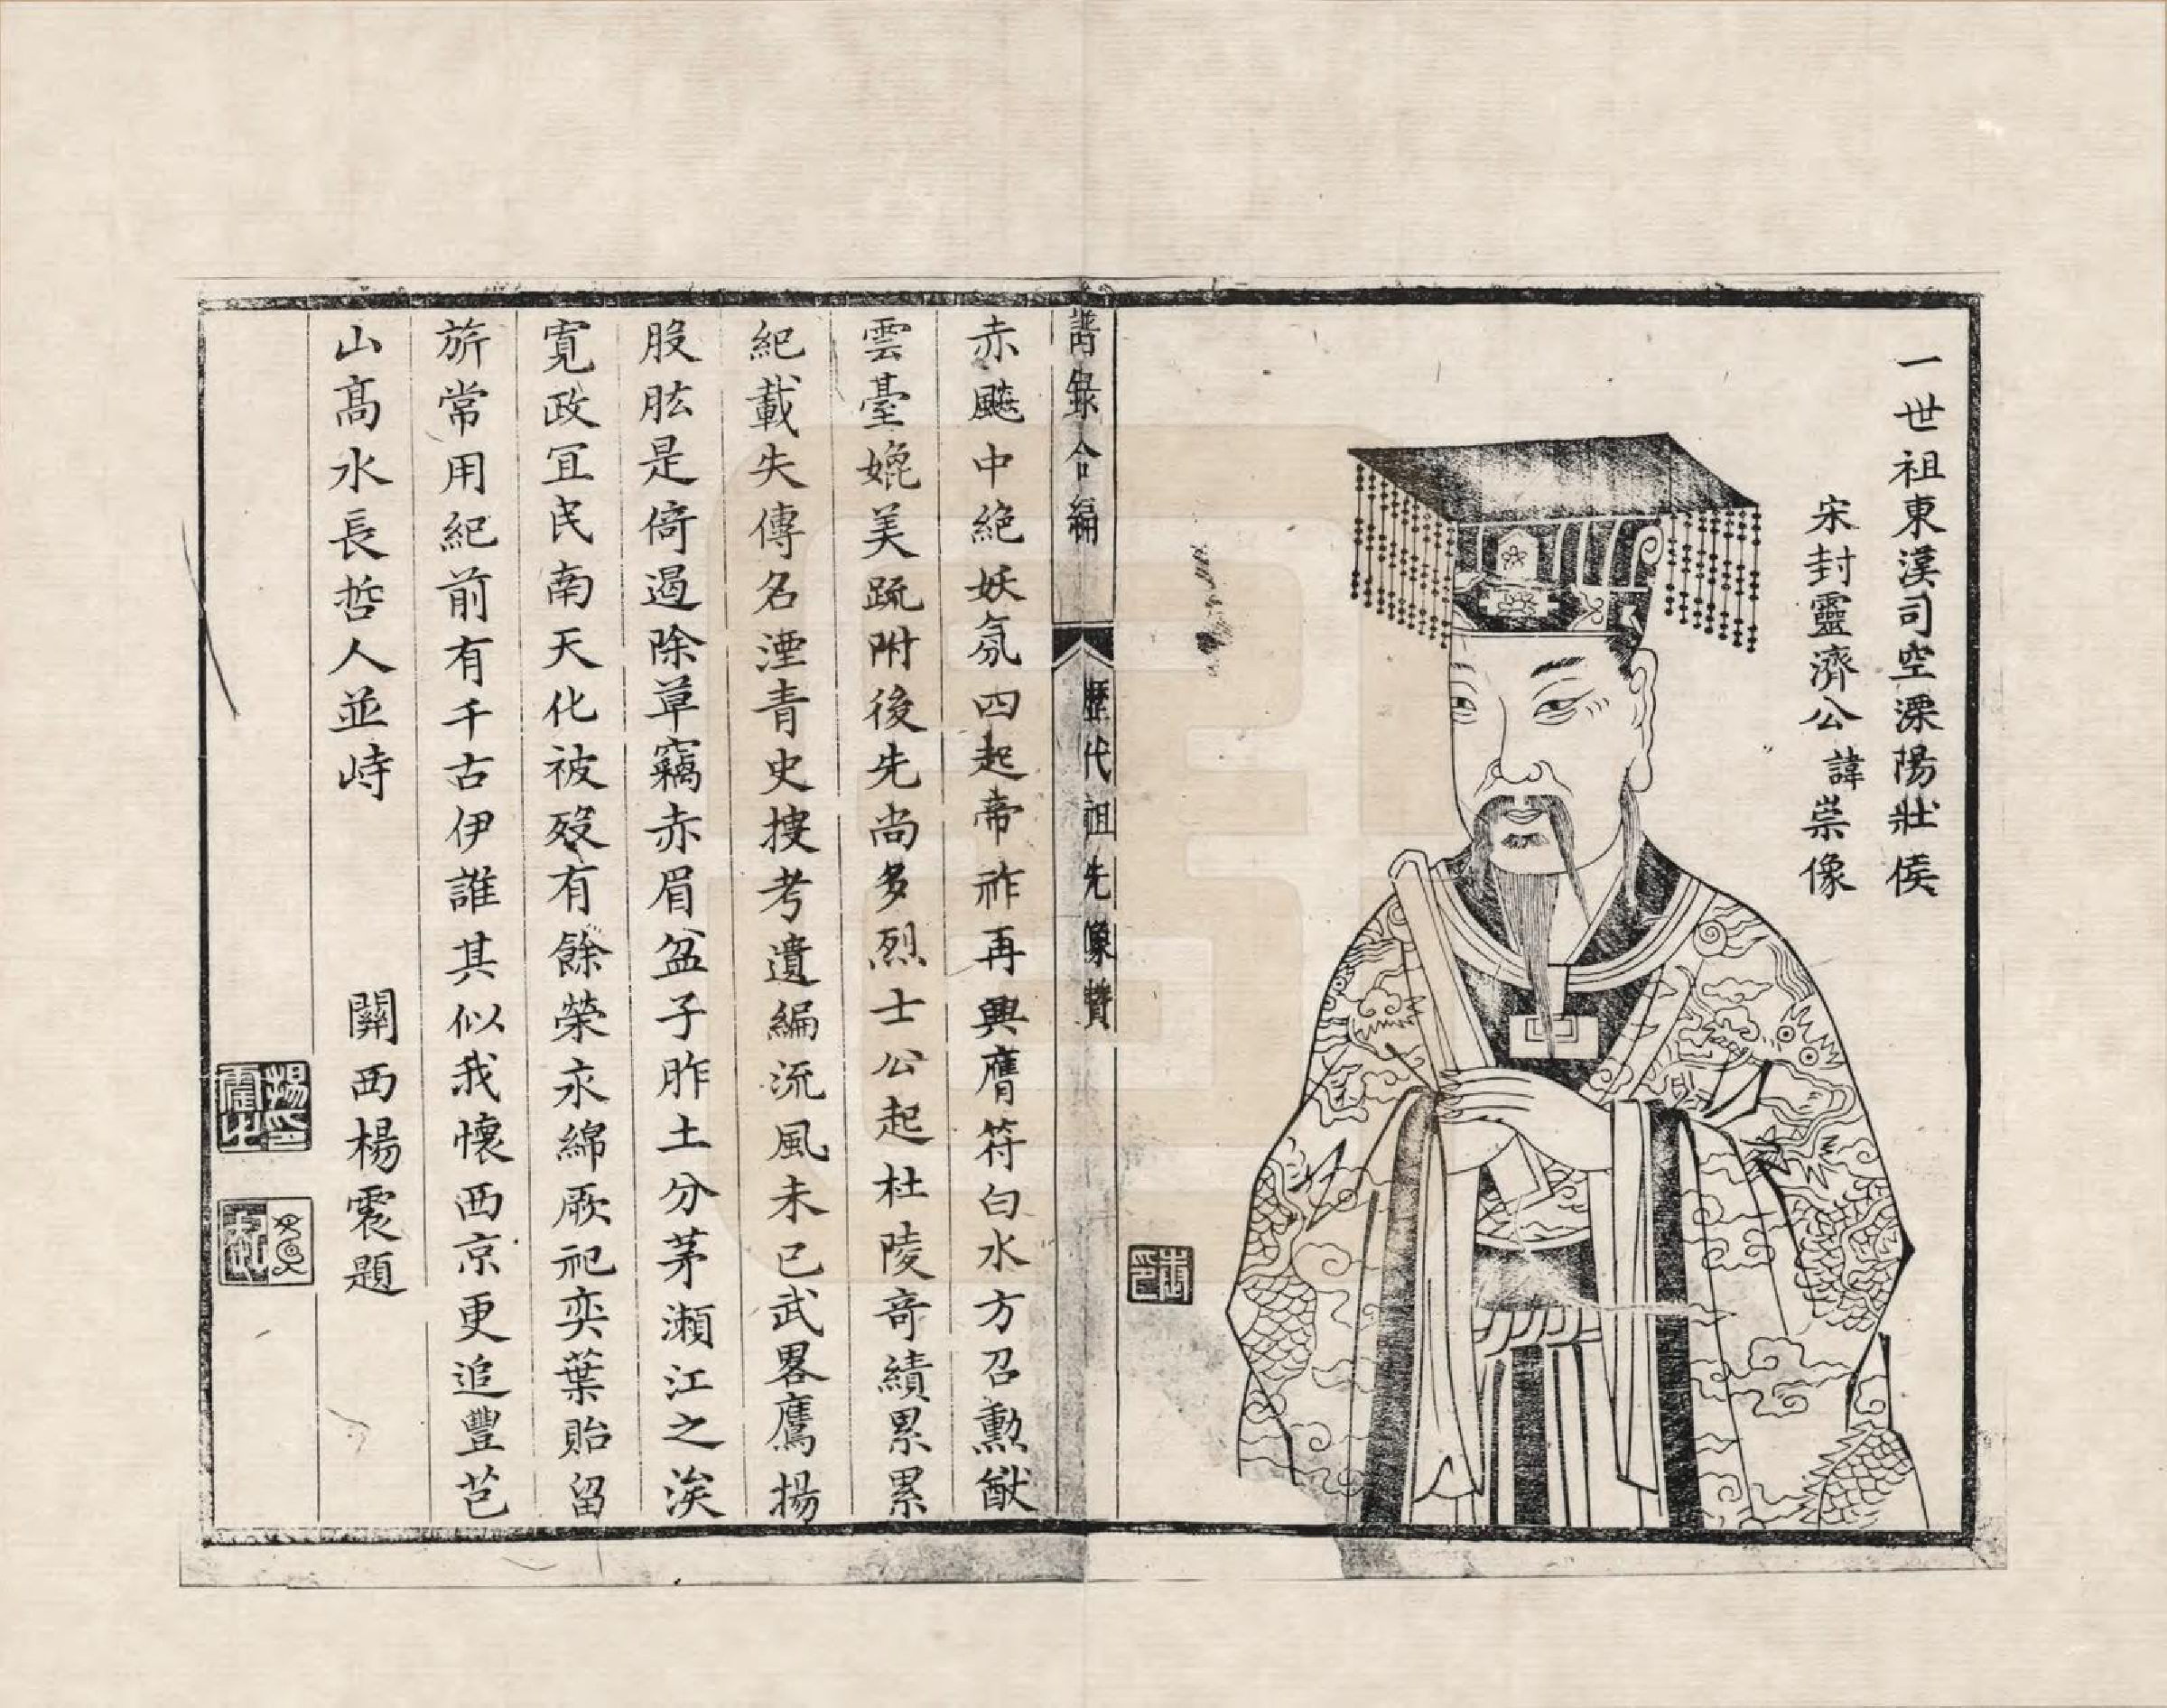 一世祖東漢司空溧陽壯侯
宋封靈濟公諱崇像
譜錄合編
歷代祖先像贊
赤飈中絶妖氛四起帝祚再興膺符白水方召勲猷
雲臺媲美䟽附後先尚多烈士公起杜陵竒績累累
紀載失傳名湮青史摟考遺編流風未已武畧鷹揚
股肱是倚遏除草竊赤眉盆子胙土分茅瀬江之涘
寛政冝民南天化被歿有餘榮永綿厥祀奕葉貽留
旂常用紀前有千古伊誰其似我懷西京更追豐芑
山髙水長哲人並峙
關西楊震題
楊印
震